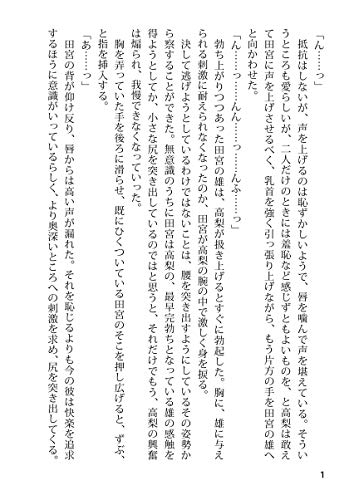 「ん……っ」
　抵抗はしないが、声を上げるのは恥ずかしいようで、唇を噛んで声を堪えている。そうい
うところも愛らしいが、二人だけのときには羞恥など感じずともよいものを、と高梨は敢え
て田宮に声を上げさせるべく、乳首を強く引っ張り上げながら、もう片方の手を田宮の雄へ
と向かわせた。
「ん……っ……んん……っ……んふ……っ」
　勃ち上がりつつあった田宮の雄は、高梨が扱き上げるとすぐに勃起した。胸に、雄に与え
られる刺激に耐えられなくなったのか、田宮が高梨の腕の中で激しく身を捩る。
　決して逃げようとしているわけではないことは、腰を突き出すようにしているその姿勢か
ら察することができた。無意識のうちに田宮は高梨の、最早完勃ちとなっている雄の感触を
得ようとしてか、小さな尻を突き出しているのではと思うと、それだけでもう、高梨の興奮
は煽られ、我慢できなくなっていった。
　胸を弄っていた手を後ろに滑らせ、既にひくついている田宮のそこを押し広げると、ずぶ、
と指を挿入する。
「あ……っ」
　田宮の背が仰け反り、唇からは高い声が漏れた。それを恥じるよりも今の彼は快楽を追求
するほうに意識がいっているらしく、より奥深いところへの刺激を求め、尻を突き出してくる。
1